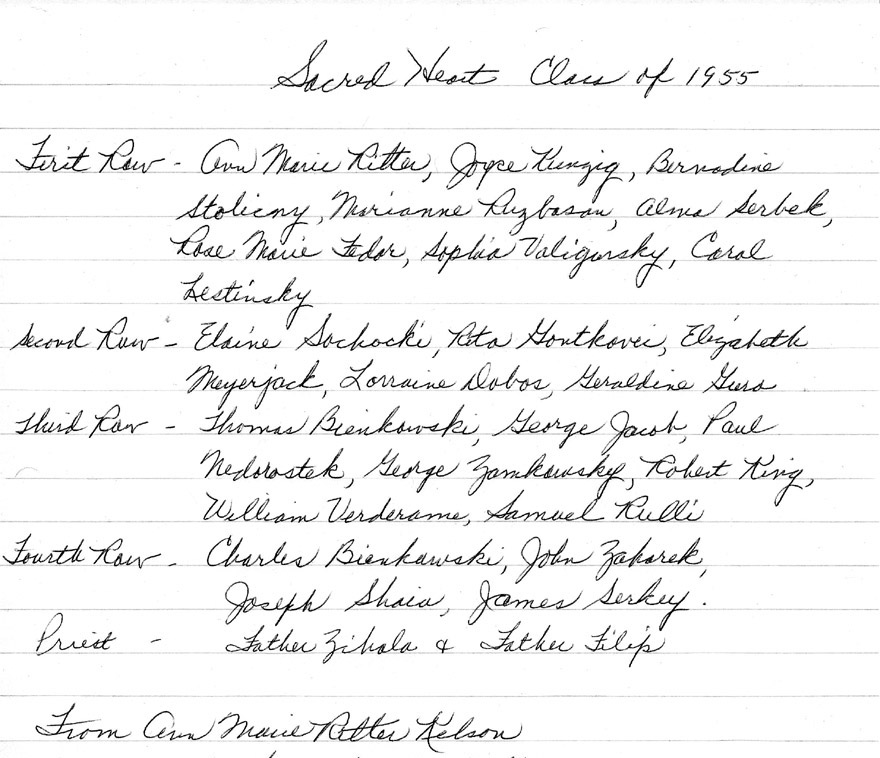 Sacred Heart Class of 1955
First Row - Ann Marie Ritter, Joyce Kunzig, Bernadine
Stolicny, Marianne Ruzbasan, Alma Serbek,
Rose Marie Fedor, Sophia Valigursky, Carol
Lestinsky
Second Row - Elaine Sochocki, Rita Gontkovic, Elizabeth
Meyerjack, Lorraine Dobos, Geraldine Gura
Third Row - Thomas Bienkowski, George Jacob, Paul
Nedorostek, George Zamkowsky, Robert King,
William Verderame, Samuel Rulli
Fourth Row - Charles Bienkowski, John Zaharek,
Joseph Shaia, James Serkey.
Priest - Father Zihala & Father Filip
From Ann Marie Ritter Kelson